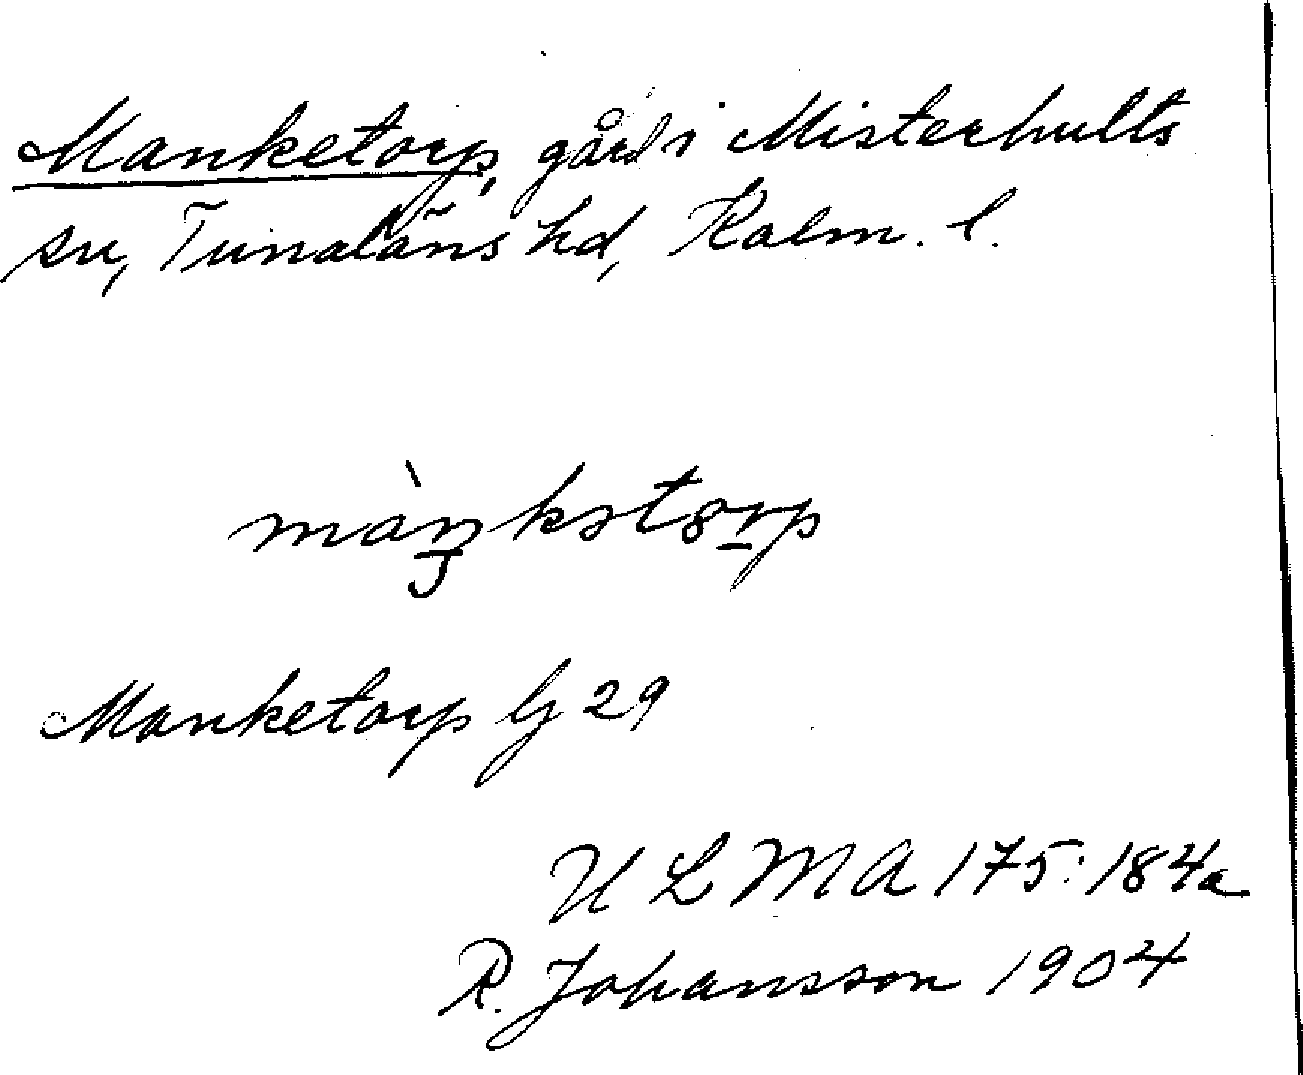 Manketorp, gård i Misterhults
sn, Tunaläns hd, Kalm. l.
màŋkətȣrp
Manketorp Gj 29
ULMA 175:184a
R. Johansson 1904